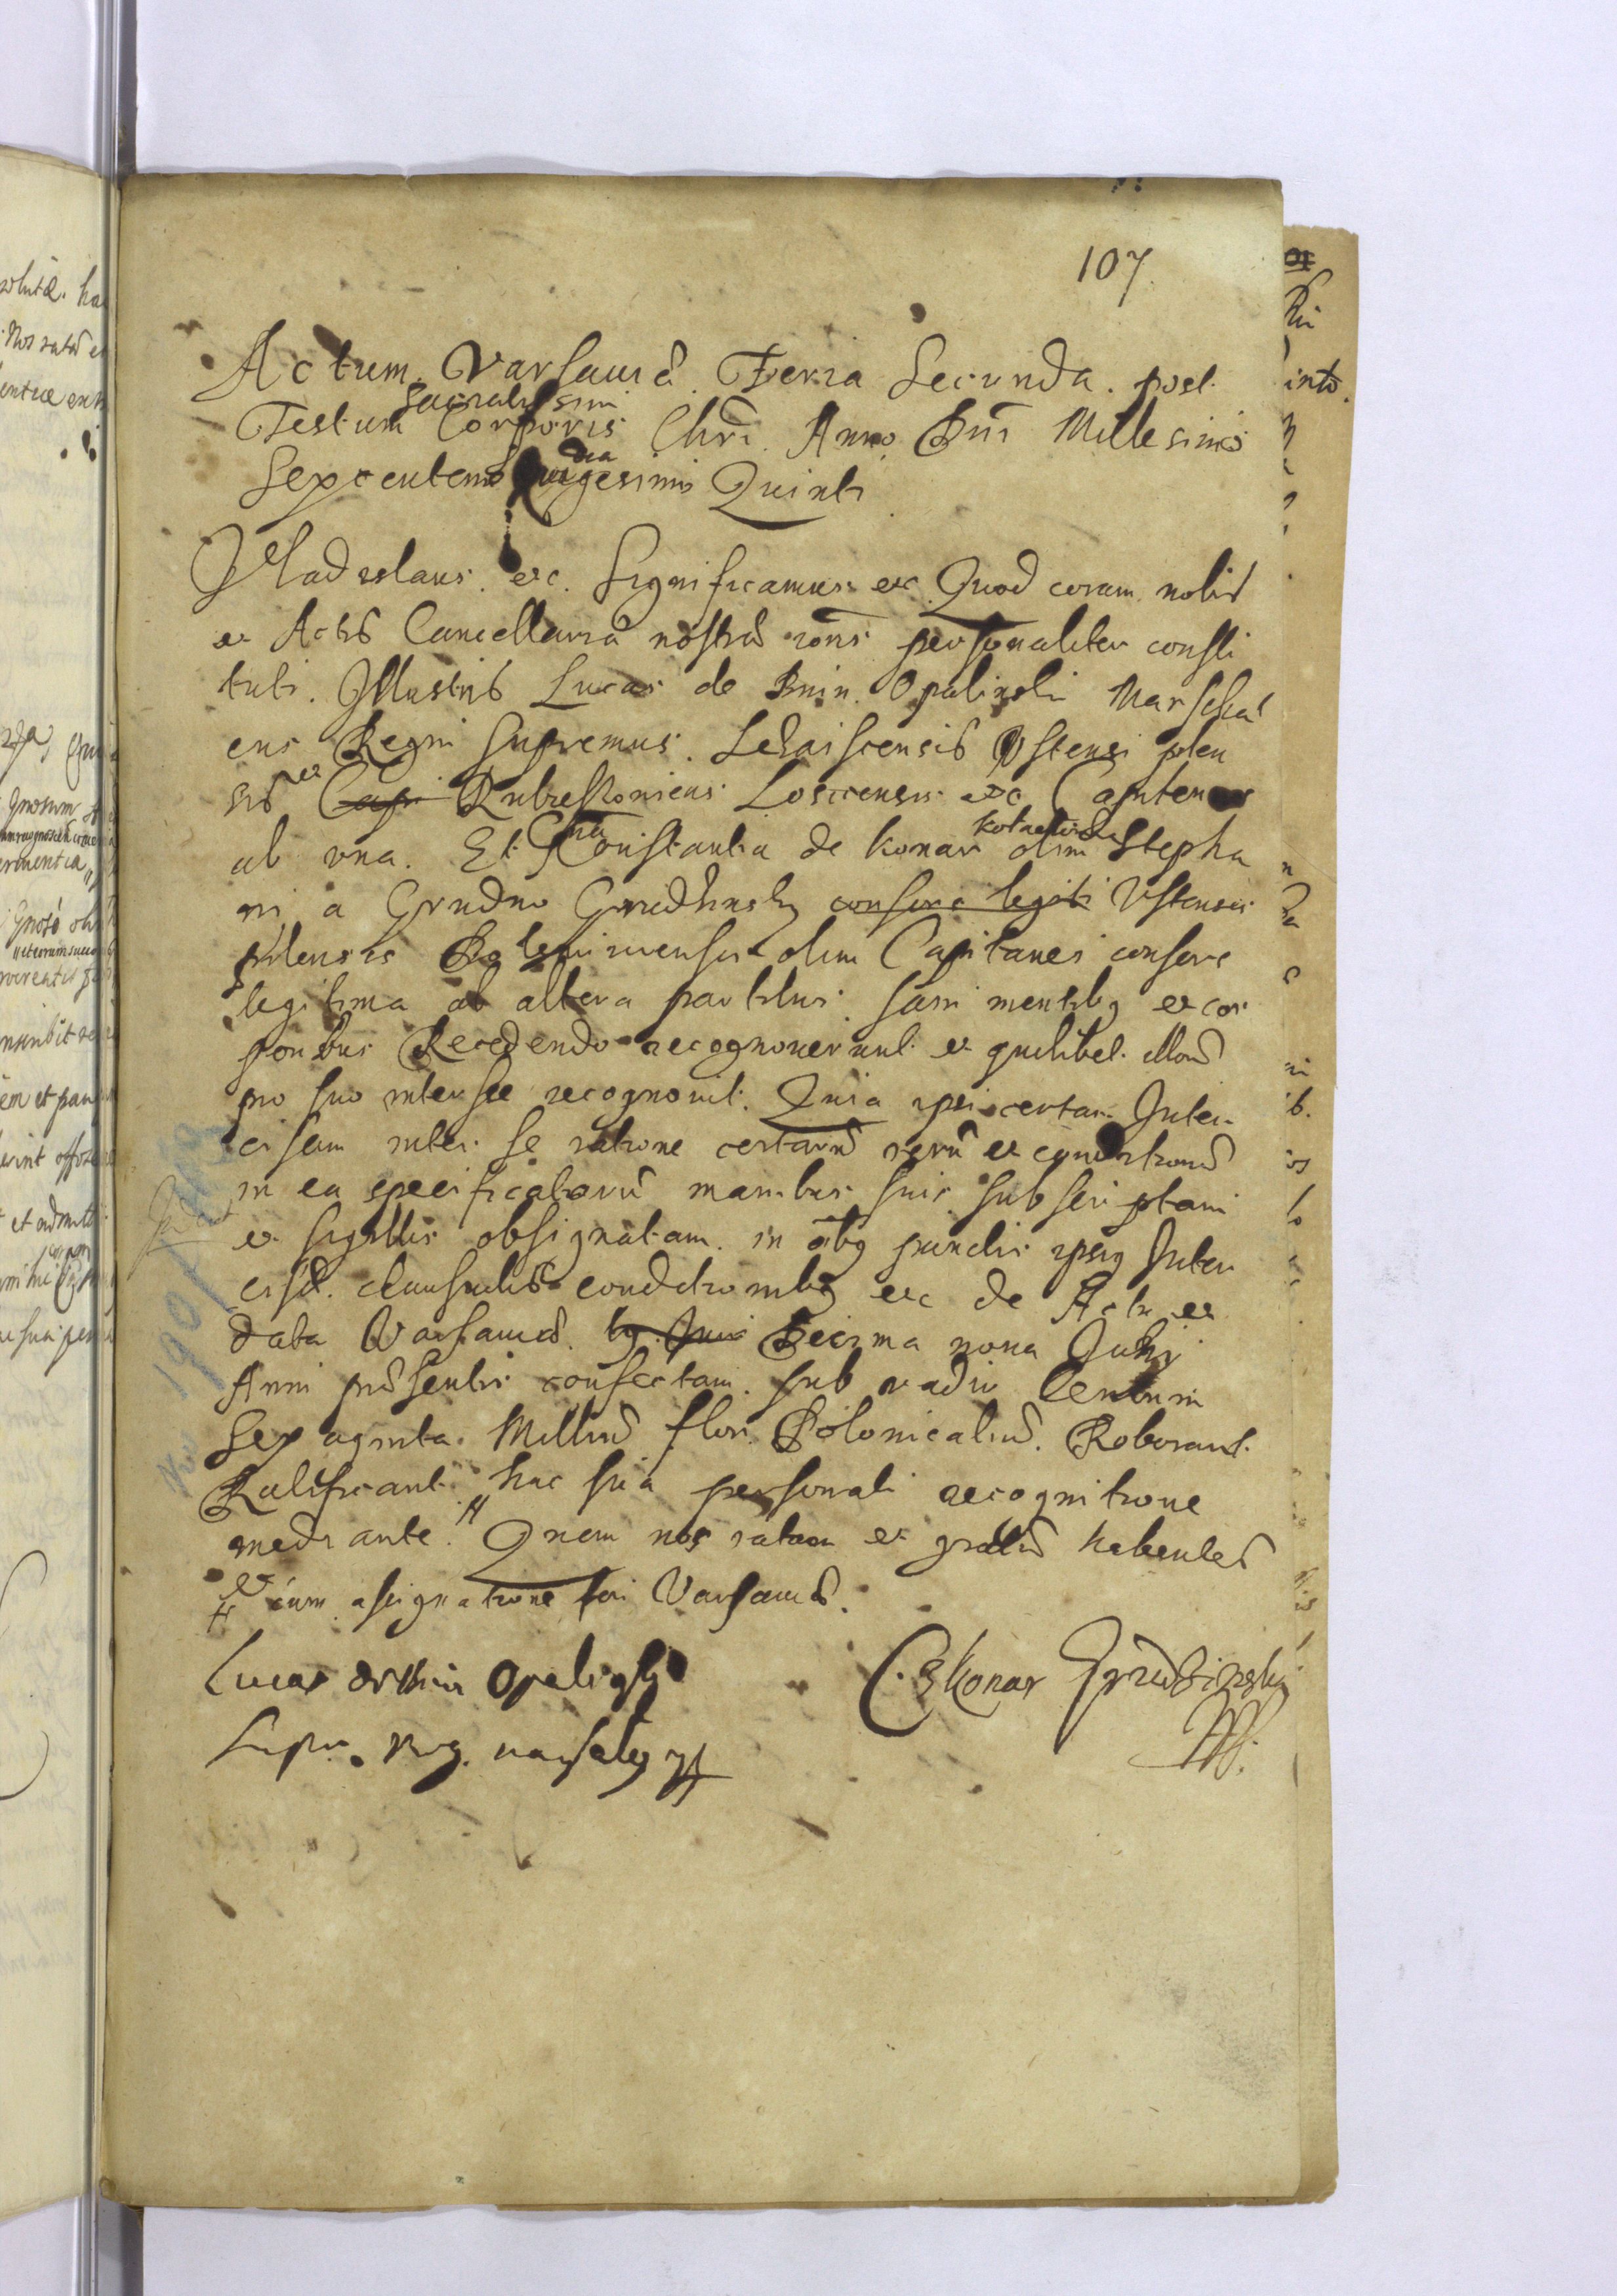 107.
Actum Varsauiæ Feria Secunda post
Festum Sacratissimi Corporis Chri Anno Dni Millesimo
Sexcentesimo Quadragesimo Quinto
Vladislaus etc. Significamus etc Quod coram nobis
et Actis Cancellariæ nostræ personaliter consti
tuti. Illustris Lucas de Bnin Opalinski Marschal
cus Regni supremus Leżaiscensis Vstensis plen
sis et Capi Rubiesouiens Losicensis etc Capitaneus
ab vna. Et Gnsa Constantia de Konar Kołaczkowska olim Stepha
ni a Grudno Grudzinsky consors legiti Vstensis
pilensis Bolemiouensis olim Capitanei consors
legitima ab altera partibus sani mentibq et cor
poribus Recedendo recognouerunt et quilibet illorum
pro suo interesse recognouit. Quia ipsi certam Inter
cisam inter se ratione certarum rerum et conditionum
in ea specificatorum manibus suis subscriptam
et sigillis obsignatam in oibq punctis ipsiq Inter
cisæ clausulis conditionibq etc de Actu et
data Varsauiæ 19 Juni Decima nona Juny
Anni præsentis confectam sub vadio Centum
Sexaginta Millium flor Polonicalium. Roborant
Ratificant hac sua personali recognitione
mediante. H Quam nos ratam et gratam habentes
H et cum assignatione fori Varsauiæ.
Lucas de Bnin Opalinsky
Supr. Reg. Marschalq
C. z Konar Grudzinska